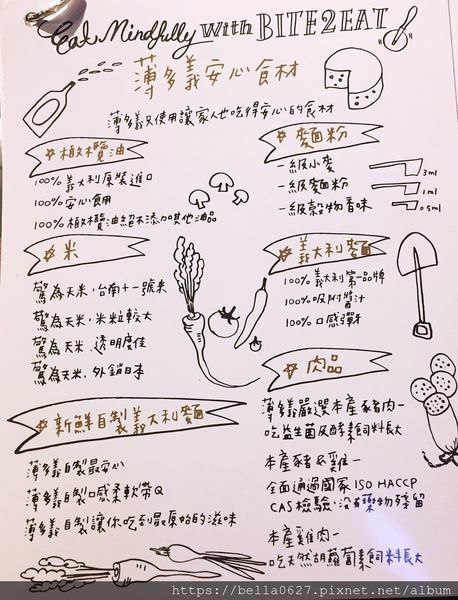 Eat Mindfully with BITE2EAT
薄多義安心食材
薄多義只使用讓家人也吃得安心的食材
橄欖油
100% 義大利原裝進口
100% 安心食用
100% 橄欖油絕不添加其他油品
米
驚為天米,台南十一號米
驚為天米,米粒較大
驚為天米,透明度佳
驚為天米,外銷日本
新鮮自製義大利麵
薄多義自製最安心
薄多義自製口感柔軟帶Q
薄多義自製讓你吃到最原始的滋味
麵粉
一級小麥
一級麵粉
一級穀物香味
3ml
1ml
0.5ml
義大利麵
100% 義大利第一品牌
100% 吸附醬汁
100% 口感彈牙
肉品
薄多義嚴選本產豬肉-
吃益生菌及酵素飼料長大
本產豬&雞-
全面通過國家ISO HACCP
CAS檢驗,沒有藥物殘留
本產雞肉-
吃天然胡蘿蔔素飼料長大
https://bella0627.pixnet.net/album